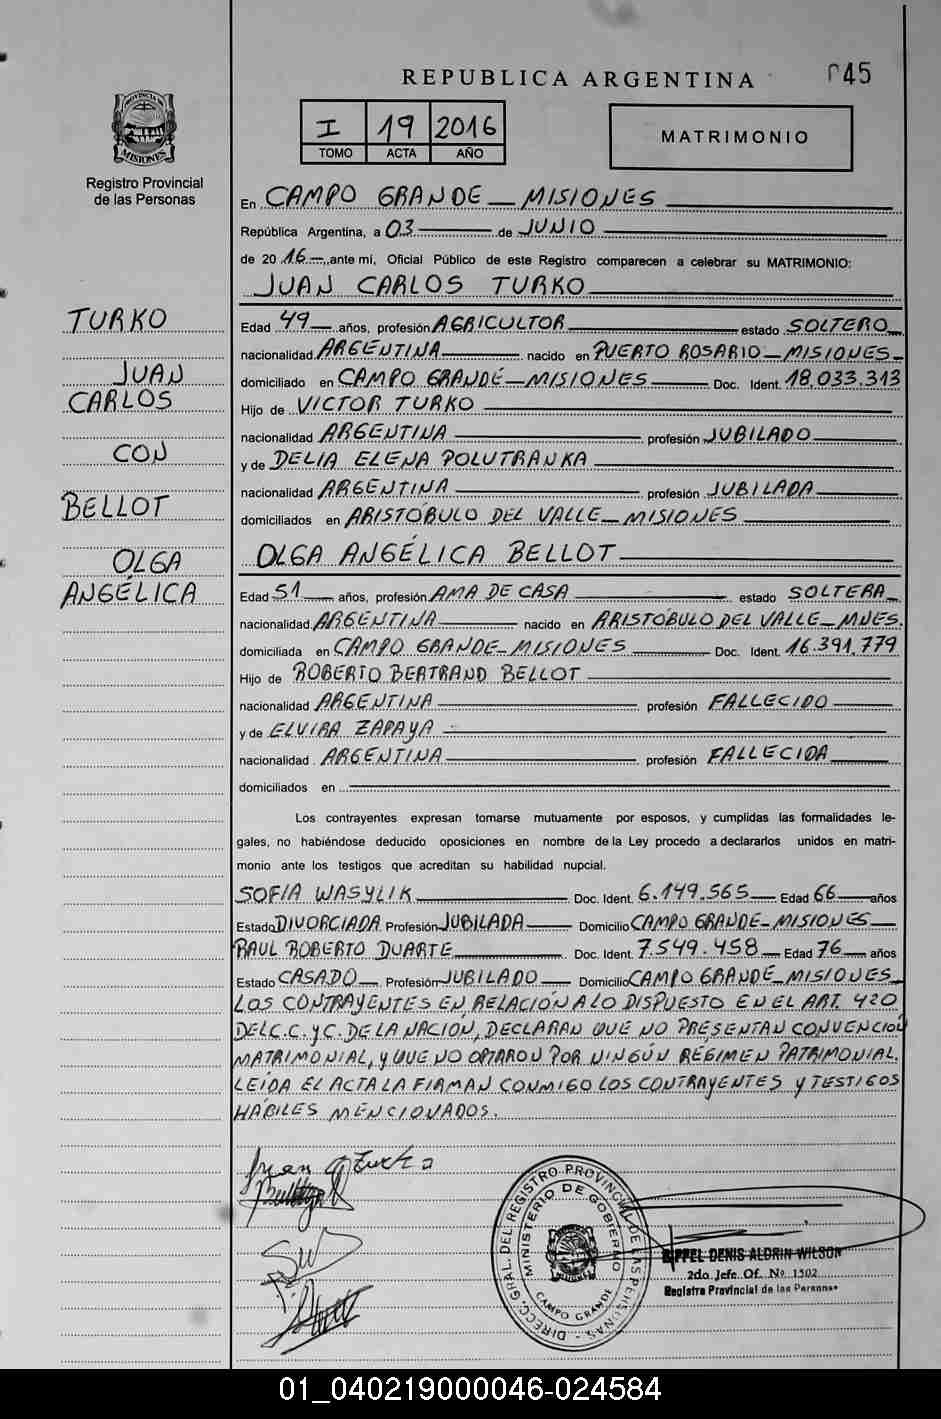 REPUBLICA ARGENTINA
045
PROVINCIA DE
MISIONES
Registro Provincial
de las Personas
I 19 2016
TOMO ACTA AÑO
MATRIMONIO
En CAMPO GRANDE - MISIONES
República Argentina, a 03 de JUNIO
de 20 16 ante mí, Oficial Público de este Registro comparecen a celebrar su MATRIMONIO:
JUAN CARLOS TURKO
TURKO
JUAN
CARLOS
CON
BELLOT
OLGA
ANGÉLICA
Edad 49 años, profesión AGRICULTOR estado SOLTERO
nacionalidad ARGENTINA nacido en PUERTO ROSARIO - MISIONES
domiciliado en CAMPO GRANDE - MISIONES Doc. Ident. 18.033.313
Hijo de VICTOR TURKO
nacionalidad ARGENTINA profesión JUBILADO
y de DELIA ELENA POLUTRANKA
nacionalidad ARGENTINA profesión JUBILADA
domiciliados en ARISTÓBULO DEL VALLE - MISIONES
OLGA ANGÉLICA BELLOT
Edad 51 años, profesión AMA DE CASA estado SOLTERA
nacionalidad ARGENTINA nacido en ARISTÓBULO DEL VALLE - MNES.
domiciliada en CAMPO GRANDE - MISIONES Doc. Ident. 16.391.779
Hijo de ROBERTO BERTRAND BELLOT
nacionalidad ARGENTINA profesión FALLECIDO
y de ELVIRA ZAPAYA
nacionalidad ARGENTINA profesión FALLECIDA
domiciliados en
Los contrayentes expresan tomarse mutuamente por esposos, y cumplidas las formalidades le-
gales, no habiéndose deducido oposiciones en nombre de la Ley procedo a declararlos unidos en matri-
monio ante los testigos que acreditan su habilidad nupcial.
SOFIA WASYLIK Doc. Ident. 6.149.565 Edad 66 años
Estado DIVORCIADA Profesión JUBILADA Domicilio CAMPO GRANDE - MISIONES
RAUL ROBERTO DUARTE Doc. Ident. 7.549.458 Edad 76 años
Estado CASADO Profesión JUBILADO Domicilio CAMPO GRANDE - MISIONES
LOS CONTRAYENTES EN RELACIÓN A LO DISPUESTO EN EL ART. 420
DEL C.C. y C. DE LA NACIÓN, DECLARAN QUE NO PRESENTAN CONVENCIÓN
MATRIMONIAL, y QUE NO OPTARON POR NINGÚN RÉGIMEN PATRIMONIAL.
LEIDA EL ACTA LA FIRMAN CONMIGO LOS CONTRAYENTES y TESTIGOS
HÁBILES MENCIONADOS.
Juan C Turko
DIRECC. GRAL. DEL REGISTRO PROVINCIAL DE LAS PERSONAS
MINISTERIO DE GOBIERNO
CAMPO GRANDE
DENIS ALDRIN WILSON
2do. Jefe Of. Nº 1502
Registro Provincial de las Personas
01_040219000046-024584